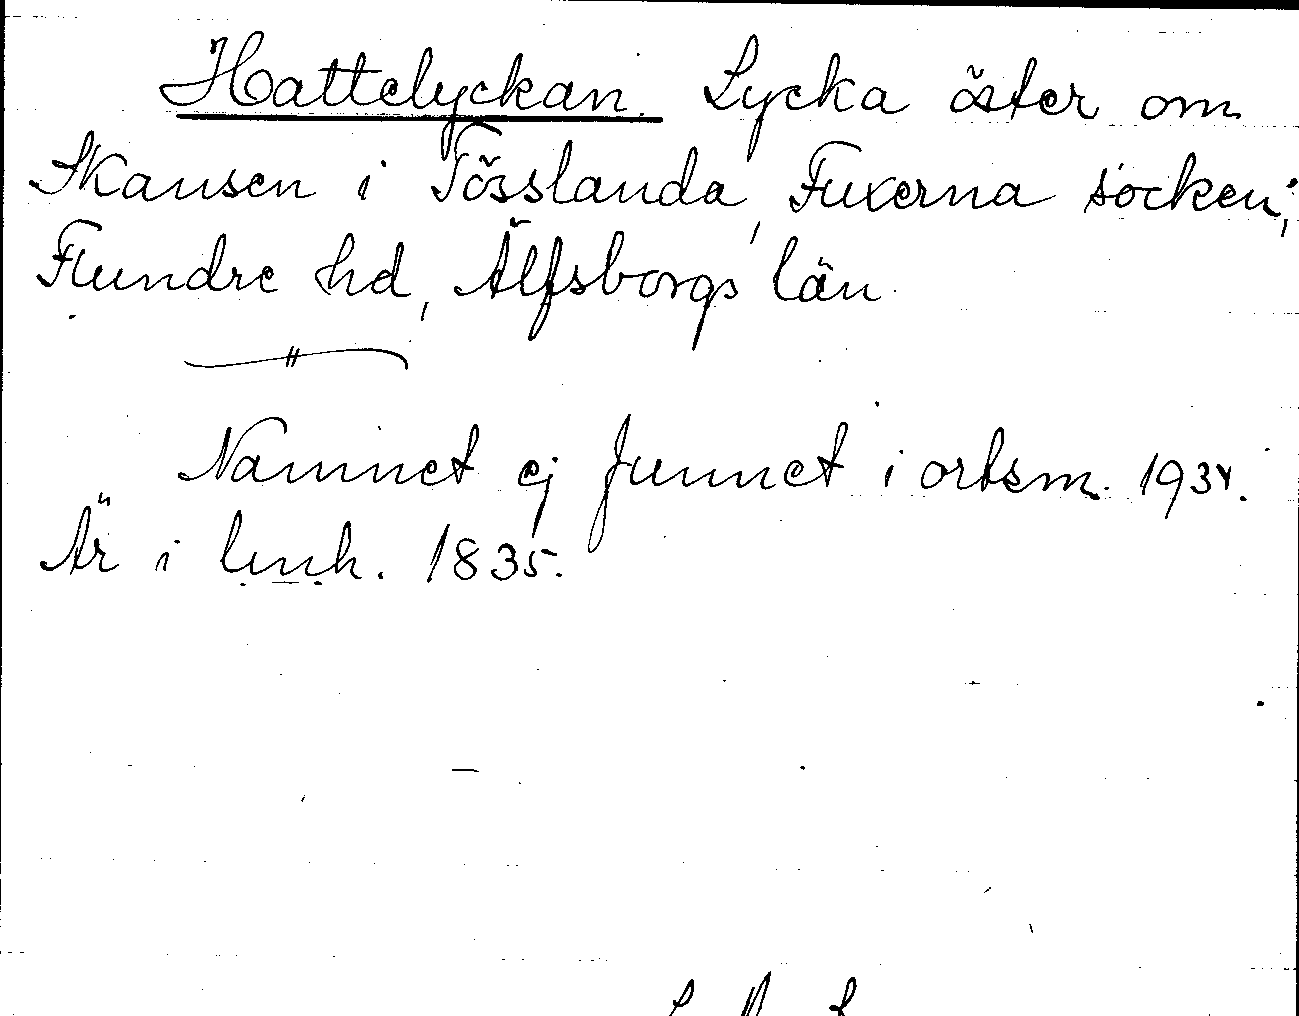 Hattelyckan. Lycka öster om
Skansen i Tösslanda, Fuxerna socken,
Flundre hd, Älfsborgs län.
Namnet ej funnet i ortsm. 1934.
Är i lmh. 1835.